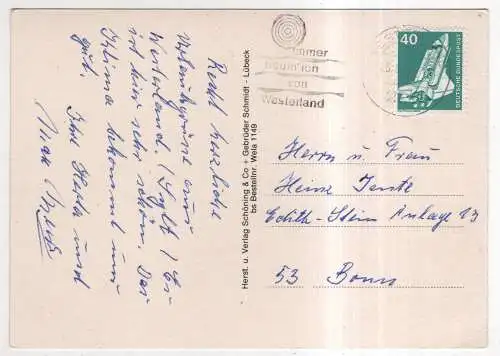 Recht herzliche
Urlaubsgrüße aus
Westerland / Sylt / Es
ist hier sehr schön. Das
Klima bekommt uns
gut.
Ihre Herta und
Max
Herst. u. Verlag Schöning & Co + Gebrüder Schmidt - Lübeck
bs Bestellnr. Wela 1149
immer
von
Westerland
40
DEUTSCHE BUNDESPOST
Herrn u. Frau
Heinz
Edith-Stein Anlage 13
53 Bonn